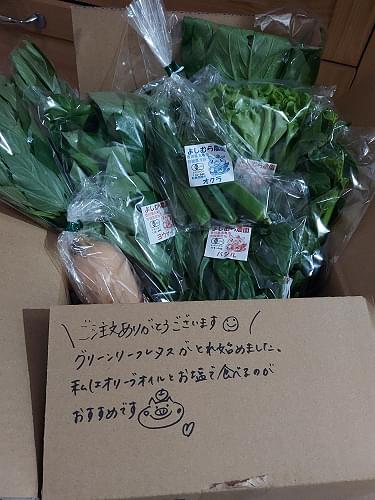 よしむら農園
オクラ
よしむら農園
よしむら農園
バジル
\ご注文ありがとうございます /
グリーンリーフレタスがとれ始めました。
私はオリーブオイルとお塩で食べるのが
おすすめです